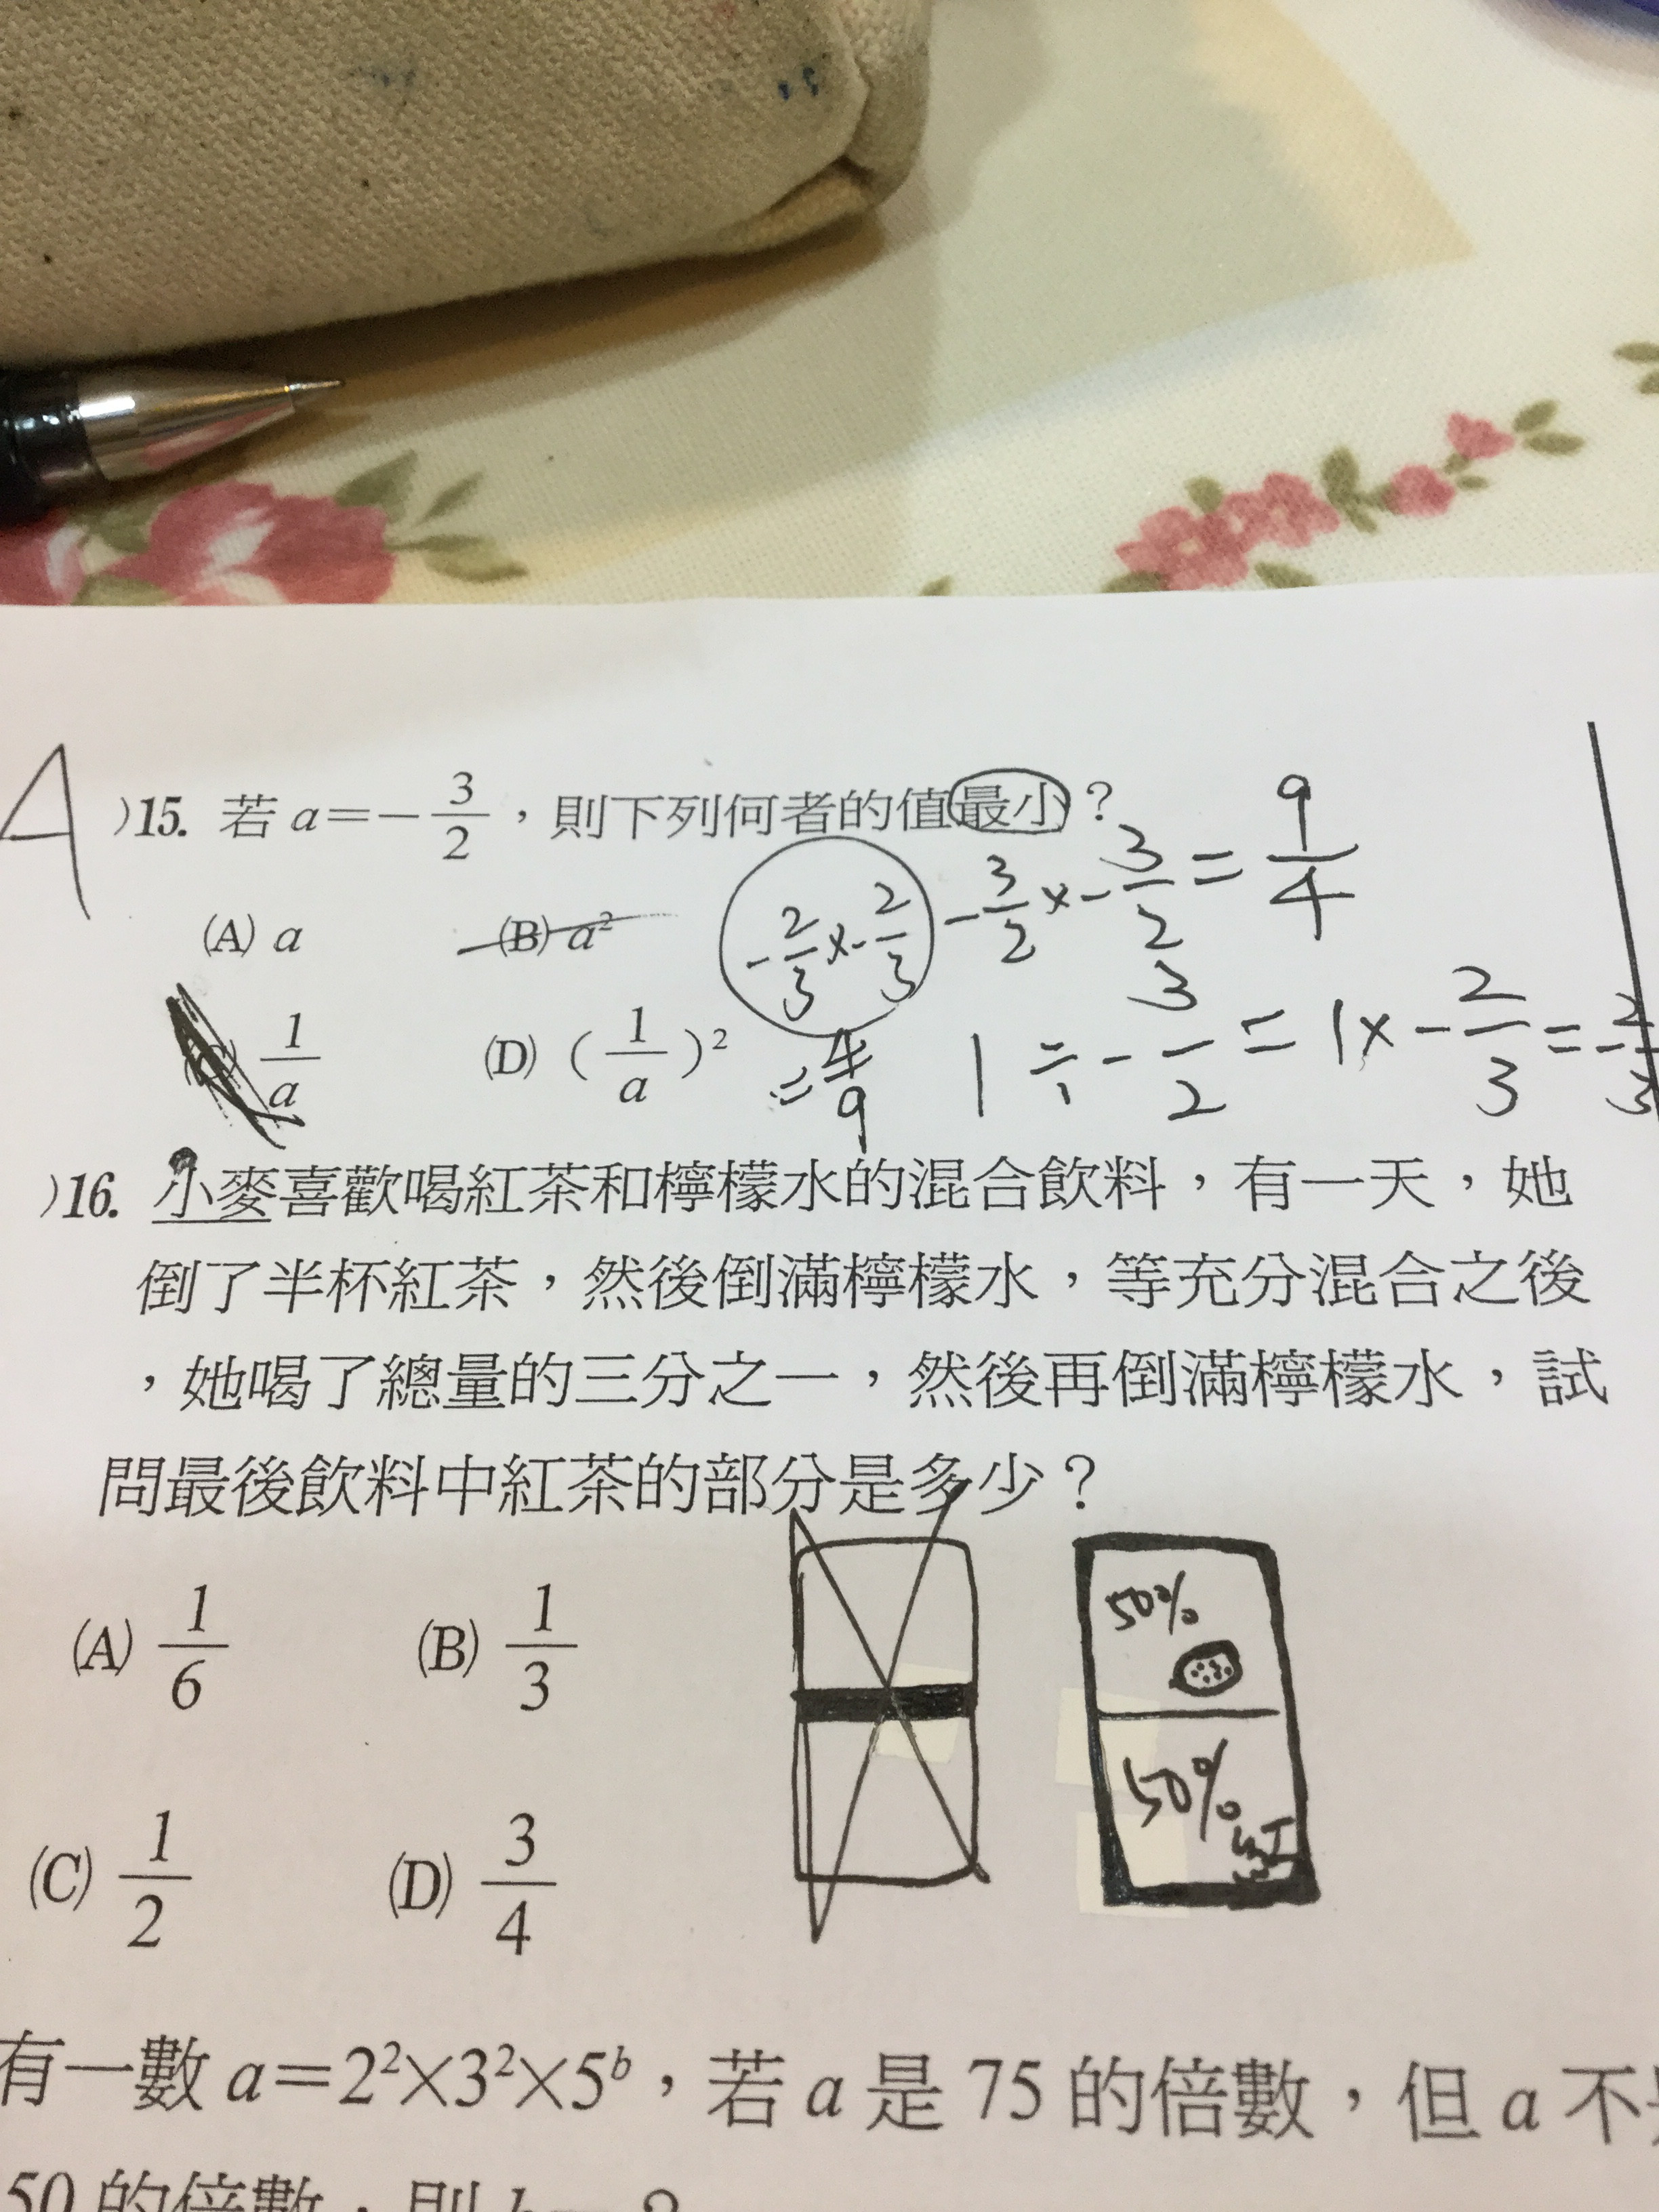 A )15. 若 a=-3/2,則下列何者的值最小?
-2/3×-2/3 -3/2×-3/2=9/4
(A) a (B) a²
(C) 1/a (D) (1/a)² =4/9 1÷-3/2=1×-2/3=-2/3
)16. 小麥喜歡喝紅茶和檸檬水的混合飲料,有一天,她
倒了半杯紅茶,然後倒滿檸檬水,等充分混合之後
,她喝了總量的三分之一,然後再倒滿檸檬水,試
問最後飲料中紅茶的部分是多少?
(A) 1/6 (B) 1/3
50%
50%紅
(C) 1/2 (D) 3/4
有一數 a=2²×3²×5ᵇ,若 a 是 75 的倍數,但 a 不
50 的倍數,則 b=?